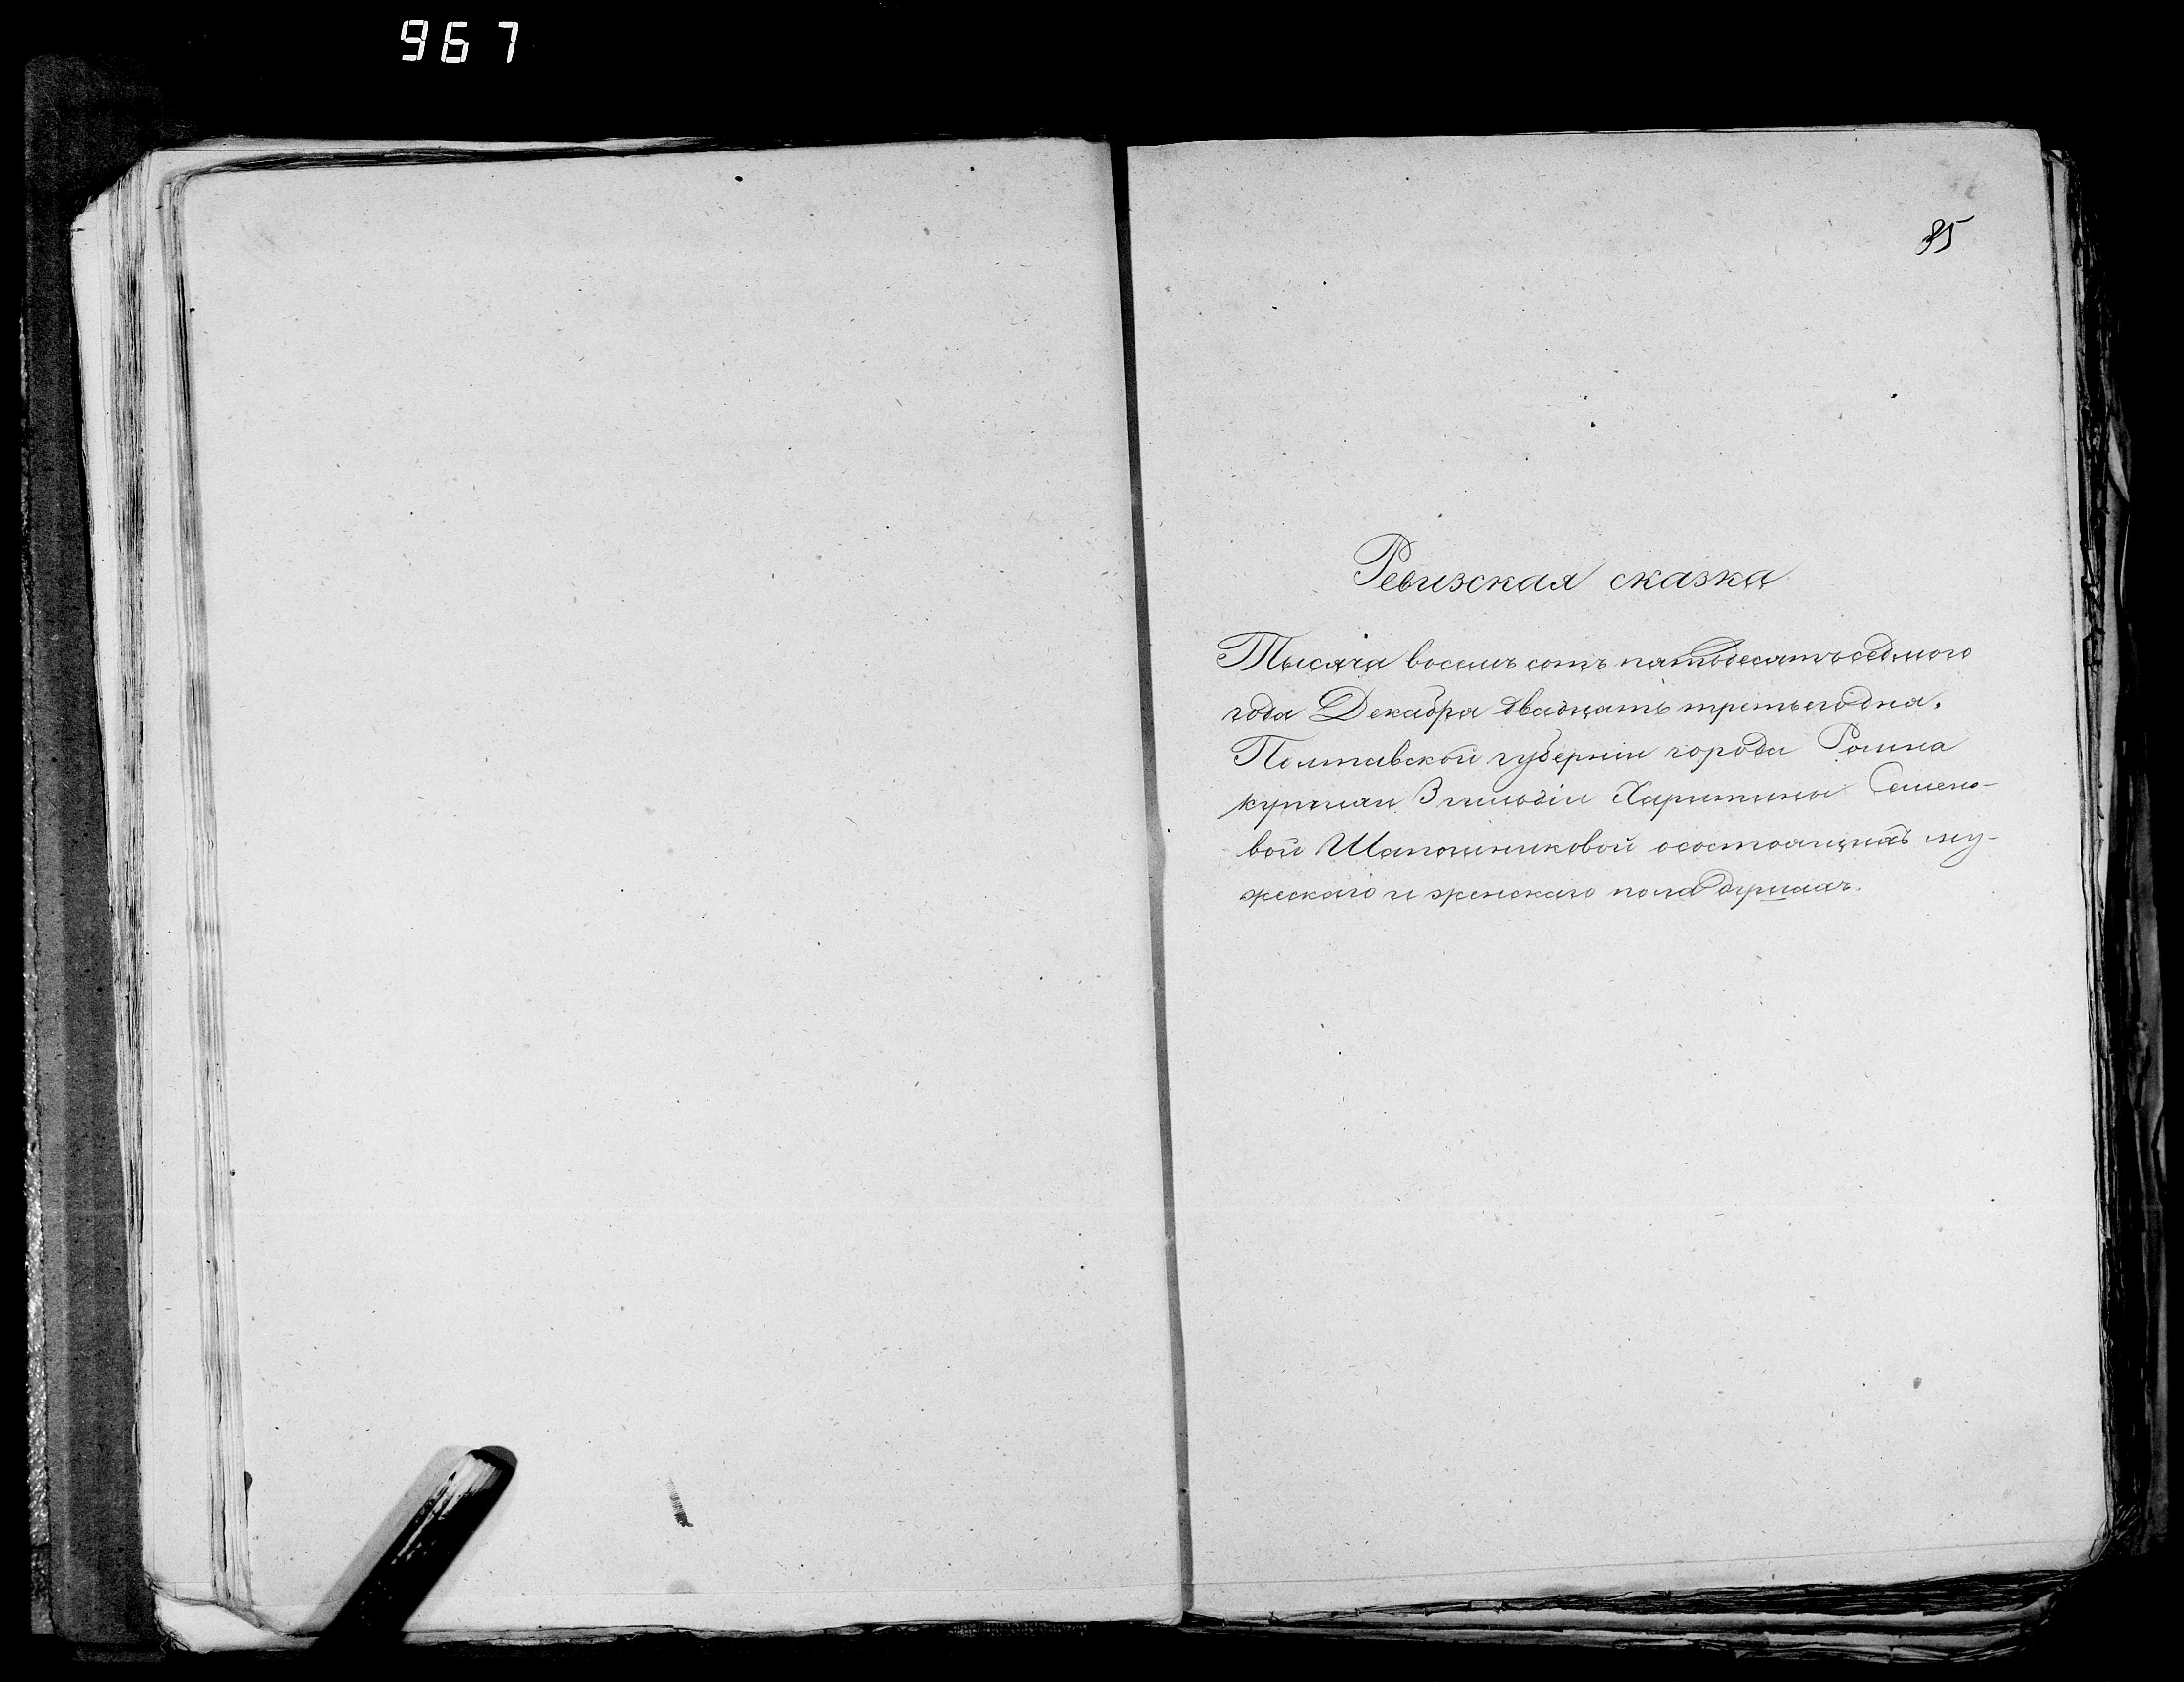 967
35
Ревизская сказка
Тысяча восемь сотъ пятьдесятъ седмого
года Декабря двадцать третьего дня.
Полтавской губерніи города Ромна
купчихи 3 гильдіи Харитины Семено-
вой Шапошниковой о состоящихъ му-
жескаго и женскаго пола душахъ.